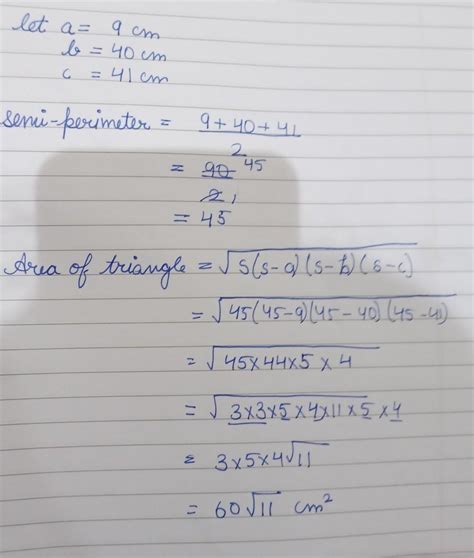 let a = 9 cm
b = 40 cm
c = 41 cm
semi-perimeter = 9 + 40 + 41
2
= 90 45
2 1
= 45
Area of triangle = √s(s-a)(s-b)(s-c)
= √45(45-9)(45-40)(45-41)
= √45×44×5×4
= √3×3×5×4×11×5×4
= 3×5×4√11
= 60√11 cm²